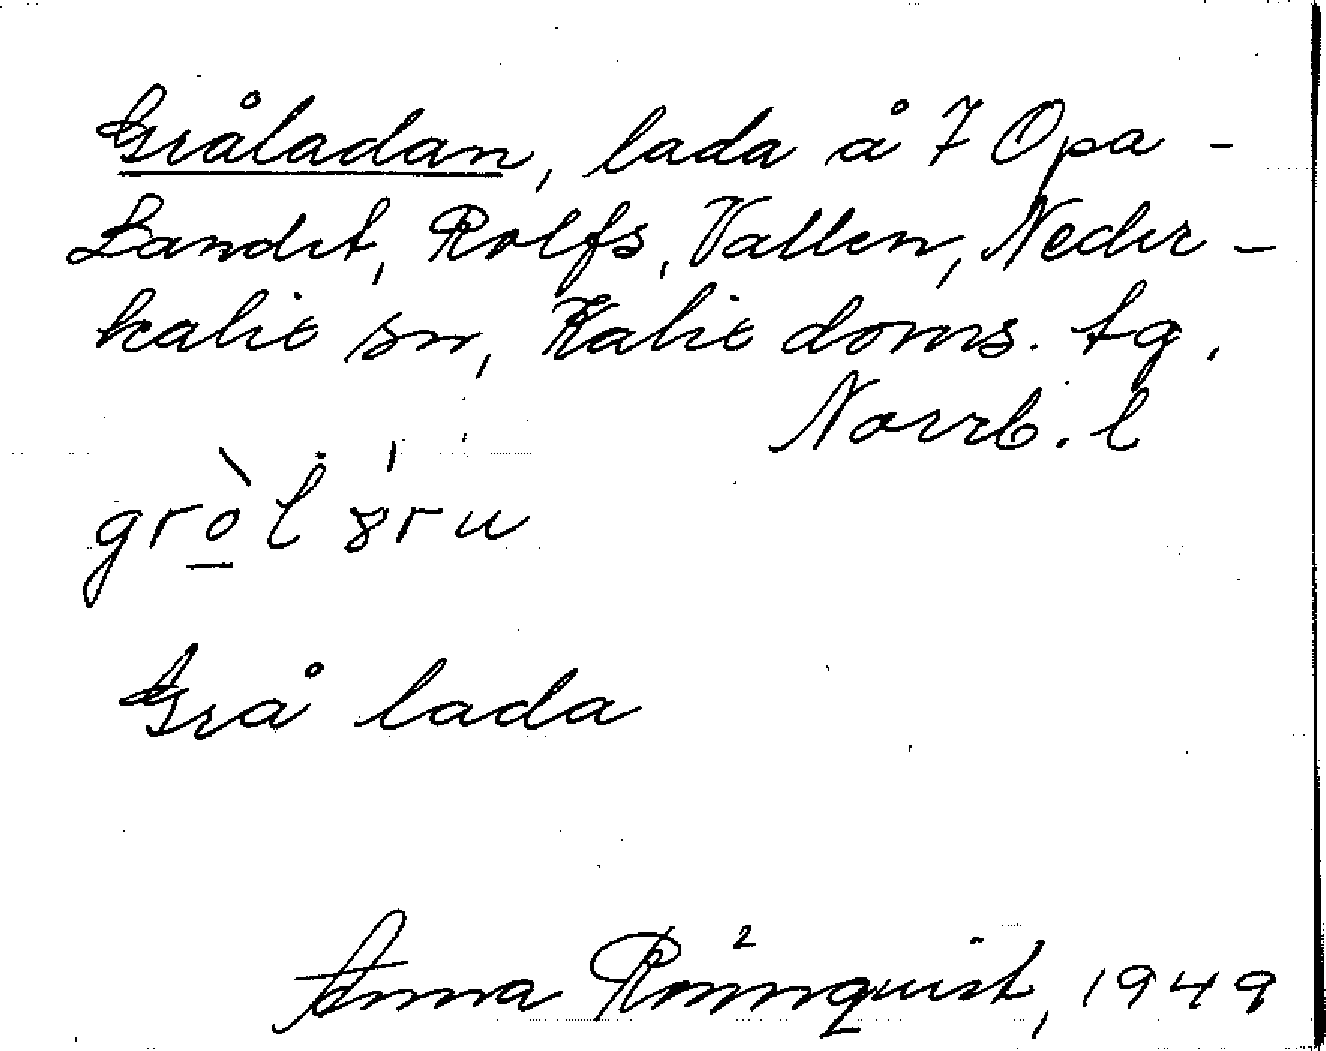 Gråladan, lada å 7 Opa-
Landet, Rolfs, Vallen, Neder-
kalix sn, Kalix doms. tg.
Norrb. l
Grå lada
Anna Rönnquist, 1949